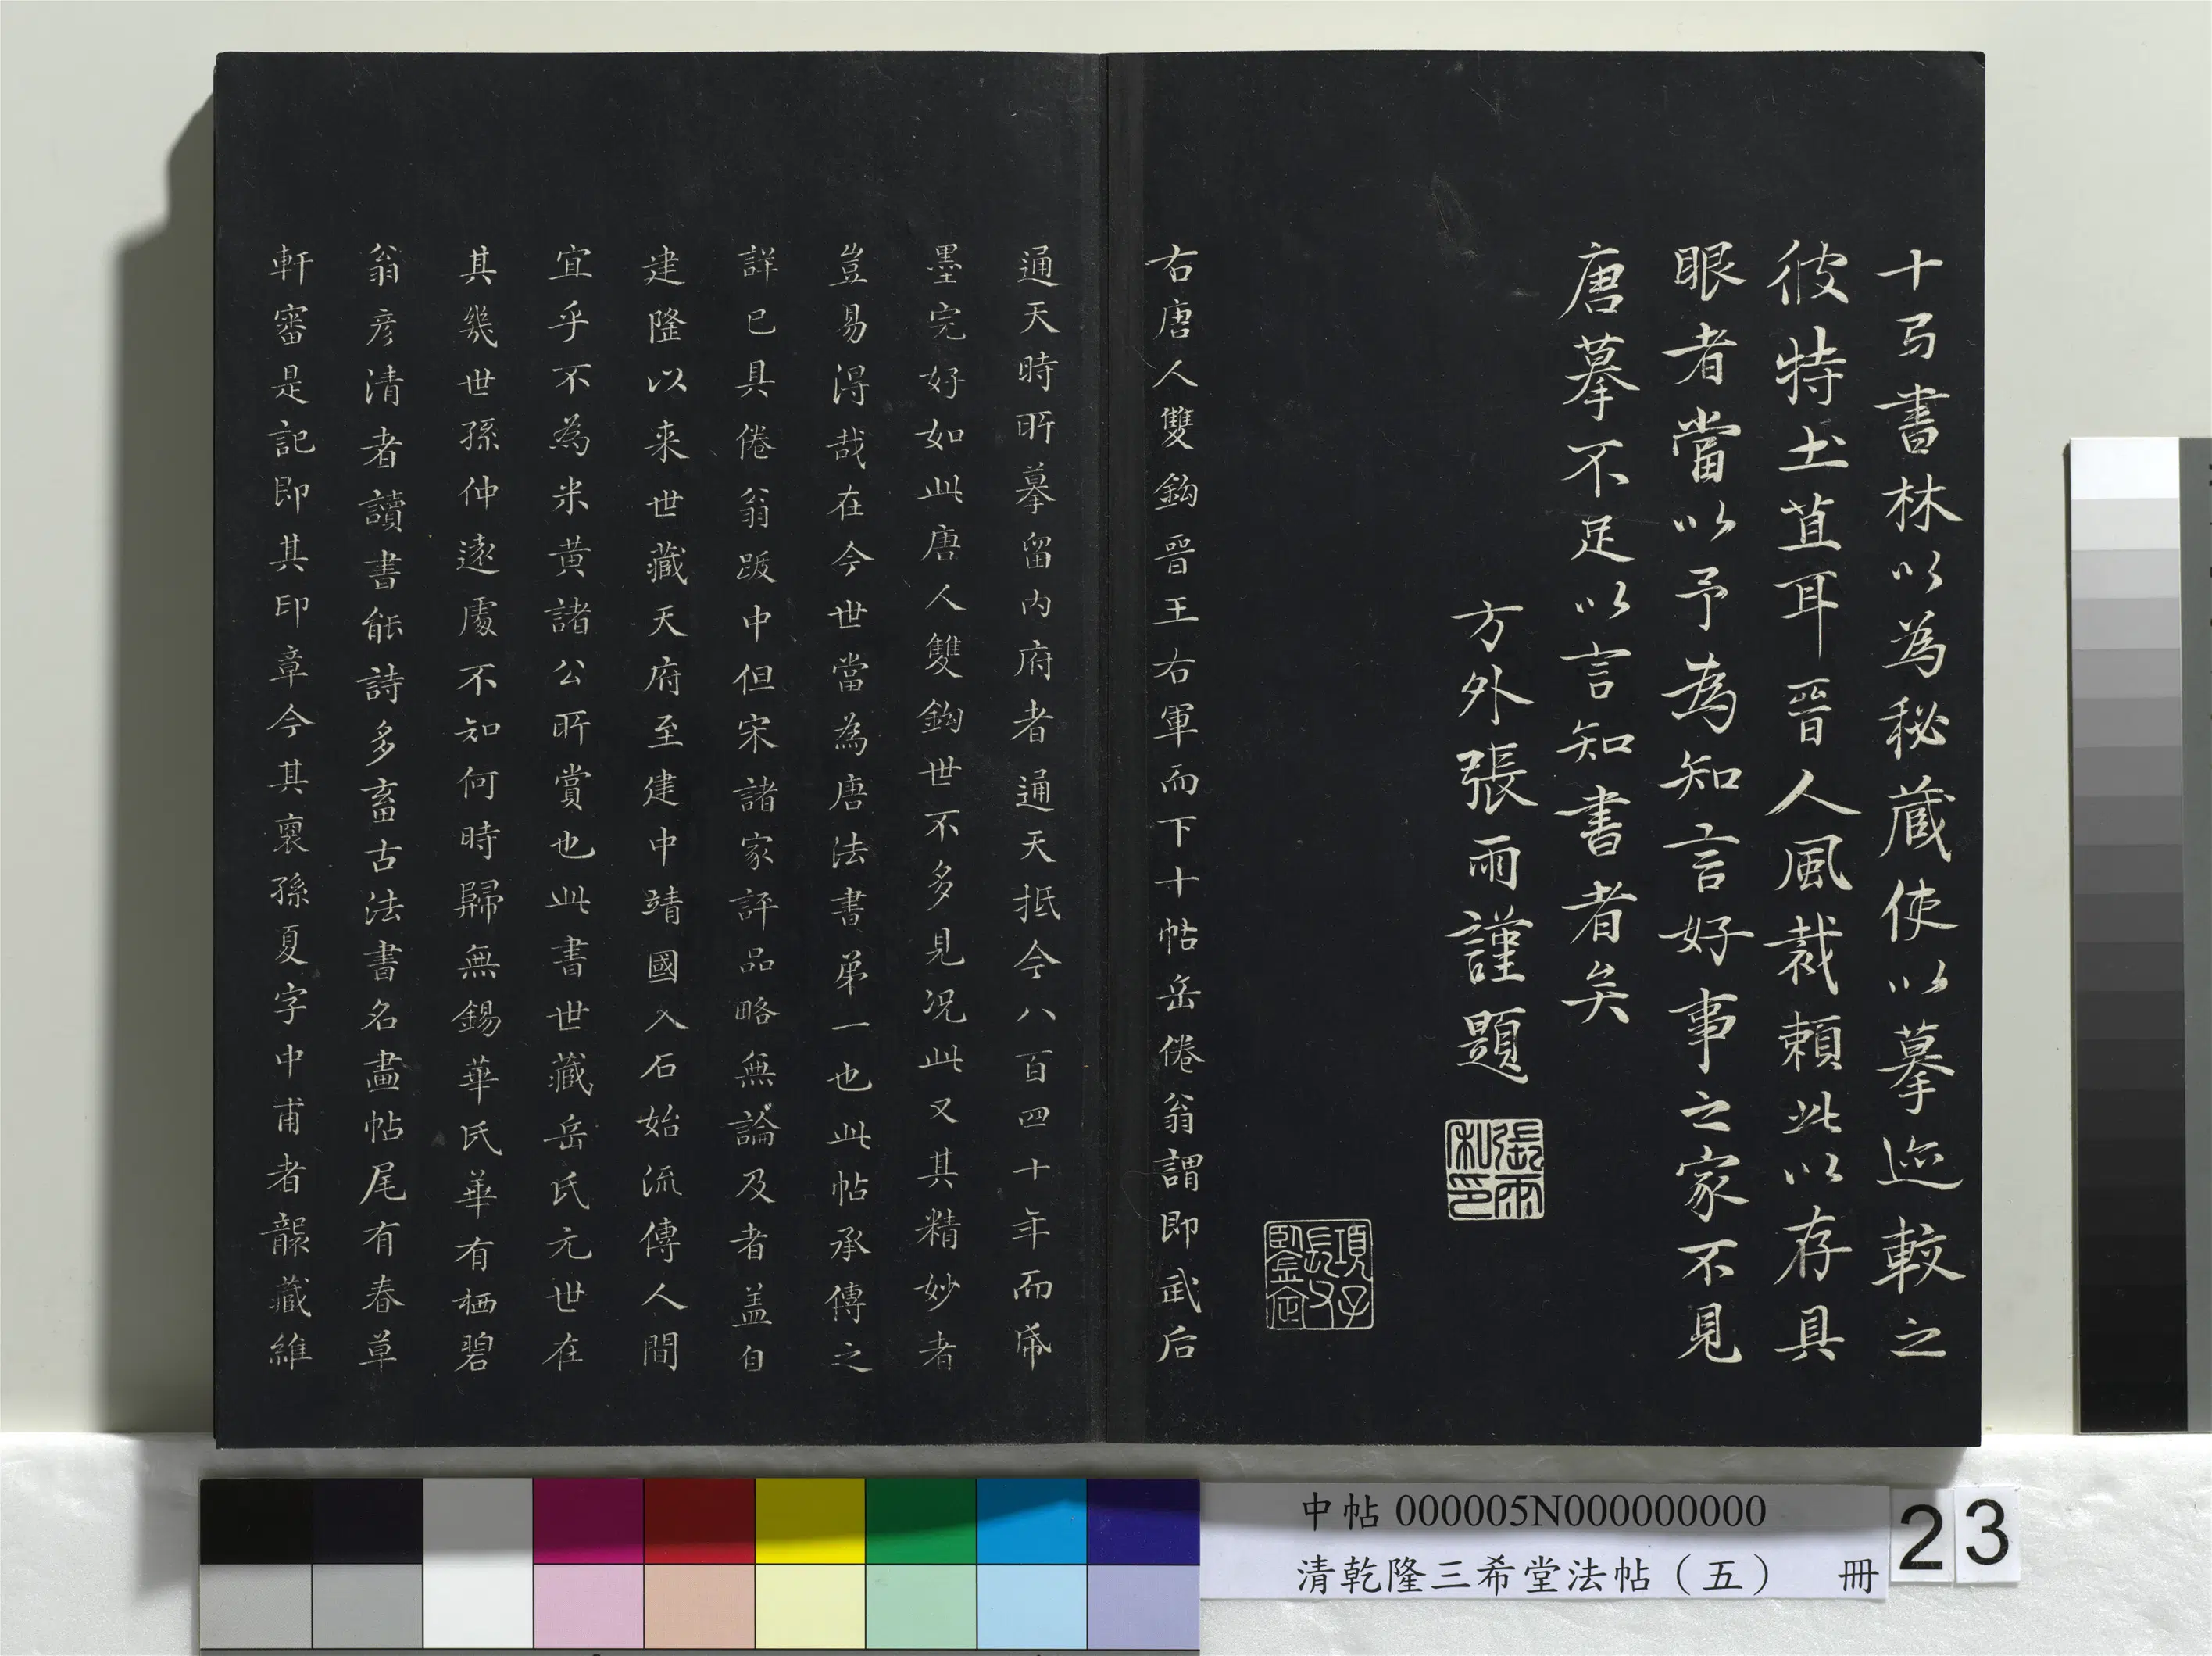 十弓書林以為秘蔵使以摹迹較之
彼特土苴耳晉人風裁頼此以存具
眼者當以予為知言好事之家不見
唐摹不足以言知書者矣
方外張雨謹題
張雨私印
項子長父鑒定
右唐人雙鈎晉王右軍而下十帖岳倦翁謂即武后
通天時所摹留內府者通天抵今八百四十年而𢁙
墨完好如此唐人雙鈎世不多見況此又其精妙者
豈易得哉在今世當為唐法書第一也此帖承傳之
詳已具倦翁跋中但宋諸家評品略無論及者盖自
建隆以来世藏天府至建中靖國入石始流傳人間
宜乎不為米黄諸公所賞也此書世藏岳氏元世在
其幾世孫仲遠處不知何時歸無錫華氏華有栖碧
翁彥清者讀書能詩多畜古法書名畫帖尾有春草
軒審是記即其印章今其裔孫夏字中甫者襲藏維
中帖 000005N000000000
清乾隆三希堂法帖（五） 冊
23